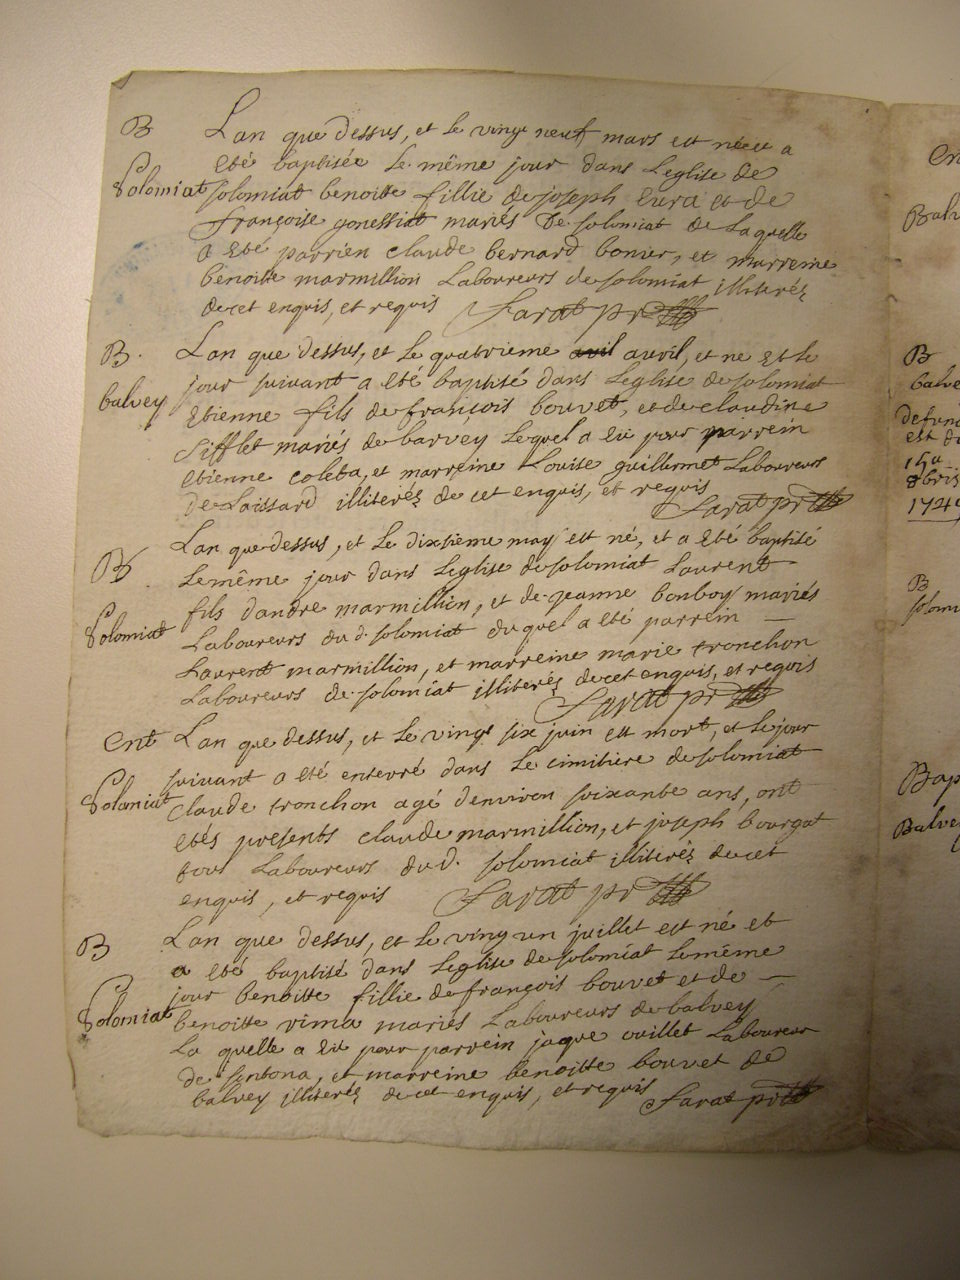 B
Solomiat
Lan que dessus, et le vingt neuf mars est néeet a
eté baptisée le même jour dans Leglise de
solomiat benoitte fillie de joseph Eura et de
françoise gonessiat mariés de solomiat de Laquelle
a eté parrien claude bernard bonier, et marreine
benoitte marmillion Laboureurs de solomiat illiterés
decet enquis, et requis Sarat ptre
B.
balvey
Lan que dessus, et le quatrieme avril, et ne et le
jour suivant a eté baptisé dans Leglise de solomiat
Etienne fils de françois bouvet, et de claudine
Sifflet mariés de barvey Lequel a eü pour parrein
etienne coleta, et marreine Louise guillermet Laboureurs
de Laissard illiterés de cet enquis, et requis
Sarat ptre
B
Solomiat
Lan que dessus, et Le dixsieme may est né, et a eté baptisé
Lemême jour dans Leglise de solomiat Laurent
fils dandre marmillion, et de jeanne bonboy mariés
Laboureurs du d. solomiat duquel a eté parrein —
Laurent marmillion, et marreine marie tronchon
Laboureurs de solomiat illiterés decet enquis, et requis
Sarat ptre
Ent
Solomiat
Lan que dessus, et Le vingt six juin est mort, et Le jour
suivant a eté enterré dans Le cimitiere de solomiat
Claude tronchon agé denviron soixante ans, ont
etés presents claude marmillion, et joseph bourgat
tous Laboureurs du d. solomiat illiterés decet
enquis, et requis Sarat ptre
B
Solomiat
Lan que dessus, et Le vingt un juillet est né et
a eté baptisé dans Leglise de solomiat Lemême
jour benoitte fillie de françois bouvet et de —
benoitte vima mariés Laboureurs de balvey
La quelle a eü pour parrein jaque ouillet Laboureur
de sentona, et marreine benoitte bouvet de
balvey illiterés de cet enquis, et requis Sarat ptre
B
est
1744
B